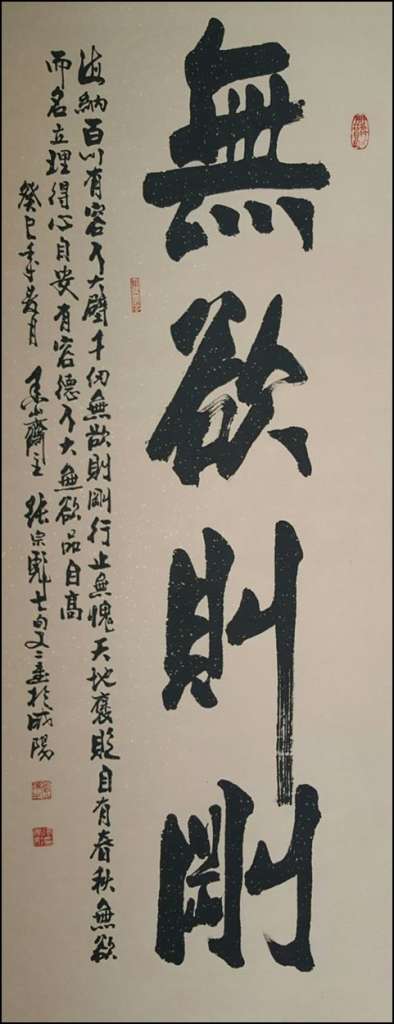 無欲則剛
海納百川有容乃大壁千仞無欲則剛行止無愧天地褒貶自有春秋無欲
而名立理得心自安有容德乃大無欲品自高
癸巳年 月 齋主 張宗 七旬又二書於咸陽